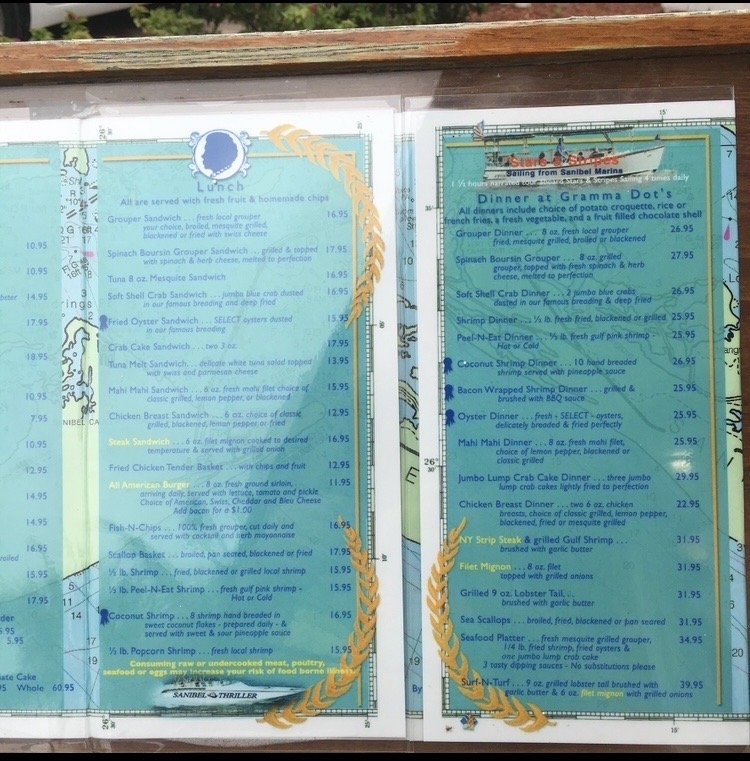 10.95
10.95
14.95
17.95
18.95
10.95
7.95
10.95
12.95
14.95
14.95
16.95
15.95
17.95
5.95
5.95
Whole 60.95
Lunch
All are served with fresh fruit & homemade chips
Grouper Sandwich ... fresh local grouper 16.95
your choice, broiled, mesquite grilled,
blackened or fried with swiss cheese
Spinach Boursin Grouper Sandwich ... grilled & topped 17.95
with spinach & herb cheese, melted to perfection
Tuna 8 oz. Mesquite Sandwich 16.95
Soft Shell Crab Sandwich ... jumbo blue crab dusted 16.95
in our famous breading and deep fried
Fried Oyster Sandwich ... SELECT oysters dusted 15.95
in our famous breading
Crab Cake Sandwich ... two 3 oz. 17.95
Tuna Melt Sandwich ... delicate white tuna salad topped 13.95
with swiss and parmesan cheese
Mahi Mahi Sandwich ... 6 oz. fresh mahi filet choice of 15.95
classic grilled, lemon pepper, or blackened
Chicken Breast Sandwich ... 6 oz. choice of classic 12.95
grilled, blackened, lemon pepper or fried
Steak Sandwich ... 6 oz. filet mignon cooked to desired 16.95
temperature & served with grilled onion
Fried Chicken Tender Basket ... with chips and fruit 12.95
All American Burger ... 8 oz. fresh ground sirloin, 11.95
arriving daily, served with lettuce, tomato and pickle
Choice of American, Swiss, Cheddar and Bleu Cheese
Add bacon for a $1.00
Fish-N-Chips ... 100% fresh grouper, cut daily and 16.95
served with cocktail and herb mayonnaise
Scallop Basket ... broiled, pan seared, blackened or fried 17.95
½ lb. Shrimp ... fried, blackened or grilled local shrimp 15.95
½ lb. Peel-N-Eat Shrimp ... fresh gulf pink shrimp - 15.95
Hot or Cold
Coconut Shrimp ... 8 shrimp hand breaded in 16.95
sweet coconut flakes - prepared daily - &
served with sweet & sour pineapple sauce
½ lb. Popcorn Shrimp ... fresh local shrimp 15.95
Consuming raw or undercooked meat, poultry,
seafood or eggs may increase your risk of food borne illness
SANIBEL THRILLER
Stars & Stripes
Sailing from Sanibel Marina
1 ½ hours narrated tour aboard Stars & Stripes Sailing 4 times daily
Dinner at Gramma Dot's
All dinners include choice of potato croquette, rice or
french fries, a fresh vegetable, and a fruit filled chocolate shell
Grouper Dinner ... 8 oz. fresh local grouper 26.95
fried, mesquite grilled, broiled or blackened
Spinach Boursin Grouper ... 8 oz. grilled 27.95
grouper, topped with fresh spinach & herb
cheese, melted to perfection
Soft Shell Crab Dinner ... 2 jumbo blue crabs 26.95
dusted in our famous breading & deep fried
Shrimp Dinner ... ½ lb. fresh fried, blackened or grilled 25.95
Peel-N-Eat Dinner ... ½ lb. fresh gulf pink shrimp - 25.95
Hot or Cold
Coconut Shrimp Dinner ... 10 hand breaded 26.95
shrimp served with pineapple sauce
Bacon Wrapped Shrimp Dinner ... grilled & 25.95
brushed with BBQ sauce
Oyster Dinner ... fresh - SELECT - oysters, 25.95
delicately breaded & fried perfectly
Mahi Mahi Dinner ... 8 oz. fresh mahi filet, 25.95
choice of lemon pepper, blackened or
classic grilled
Jumbo Lump Crab Cake Dinner ... three jumbo 29.95
lump crab cakes lightly fried to perfection
Chicken Breast Dinner ... two 6 oz. chicken 22.95
breasts, choice of classic grilled, lemon pepper,
blackened, fried or mesquite grilled
NY Strip Steak & grilled Gulf Shrimp ... 31.95
brushed with garlic butter
Filet Mignon ... 8 oz. filet 31.95
topped with grilled onions
Grilled 9 oz. Lobster Tail... 31.95
brushed with garlic butter
Sea Scallops ... broiled, fried, blackened or pan seared 31.95
Seafood Platter ... fresh mesquite grilled grouper, 34.95
1/4 lb. fried shrimp, fried oysters &
one jumbo lump crab cake
3 tasty dipping sauces - No substitutions please
Surf-N-Turf ... 9 oz. grilled lobster tail brushed with 39.95
garlic butter & 6 oz. filet mignon with grilled onions